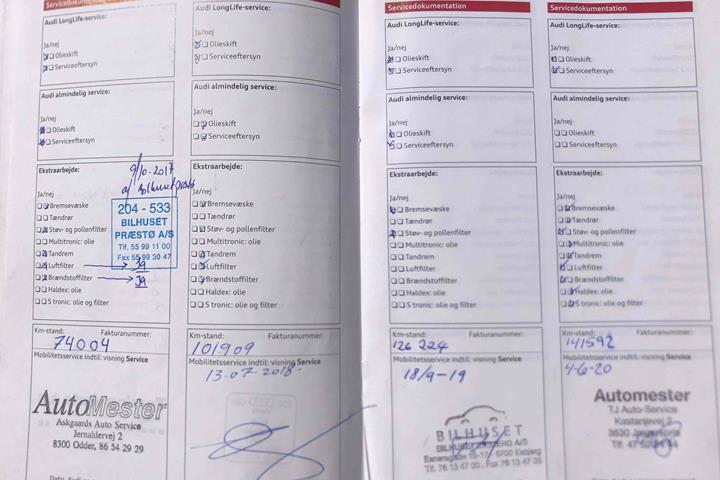 Servicedokumentation
Audi LongLife-service:
Ja/nej
Olieskift
Serviceeftersyn
Audi almindelig service:
Ja/nej
Olieskift
Serviceeftersyn
Ekstraarbejde:
9/10-2017
Ja/nej
Bremsevæske
Tændrør
Støv- og pollenfilter
Multitronic: olie
Tandrem
Luftfilter
Ja
Brændstoffilter
Ja
Haldex: olie
S tronic: olie og filter
204 - 533
BILHUSET
PRÆSTØ A/S
Tlf. 55 99 11 00
Fax 55 99 30 47
Km-stand:
Fakturanummer:
74004
Mobilitetsservice indtil: visning Service
AutoMester
Askgaards Auto Service
Jernaldervej 2
8300 Odder, 86 54 29 29
Audi LongLife-service:
Ja/nej
Olieskift
Serviceeftersyn
Audi almindelig service:
Ja/nej
Olieskift
Serviceeftersyn
Ekstraarbejde:
Ja/nej
Bremsevæske
Tændrør
Støv- og pollenfilter
Multitronic: olie
Tandrem
Luftfilter
Brændstoffilter
Haldex: olie
S tronic: olie og filter
Km-stand:
Fakturanummer:
101909
Mobilitetsservice indtil: visning Service
13-07-2018
Servicedokumentation
Audi LongLife-service:
Ja/nej
Olieskift
Serviceeftersyn
Audi almindelig service:
Ja/nej
Olieskift
Serviceeftersyn
Ekstraarbejde:
Ja/nej
Bremsevæske
Tændrør
Støv- og pollenfilter
Multitronic: olie
Tandrem
Luftfilter
Brændstoffilter
Haldex: olie
S tronic: olie og filter
Km-stand:
Fakturanummer:
126 224
Mobilitetsservice indtil: visning Service
18/9-19
BILHUSET
6700 Esbjerg
Tlf. 76 13 47 00
Servicedokumentation
Audi LongLife-service:
Ja/nej
Olieskift
Serviceeftersyn
Audi almindelig service:
Ja/nej
Olieskift
Serviceeftersyn
Ekstraarbejde:
Ja/nej
Bremsevæske
Tændrør
Støv- og pollenfilter
Multitronic: olie
Tandrem
Luftfilter
Brændstoffilter
Haldex: olie
S tronic: olie og filter
Km-stand:
Fakturanummer:
141592
Mobilitetsservice indtil: visning Service
4-6-20
Automester
TJ Auto-Service
Kastanjevej 2
3630
Tlf. 47